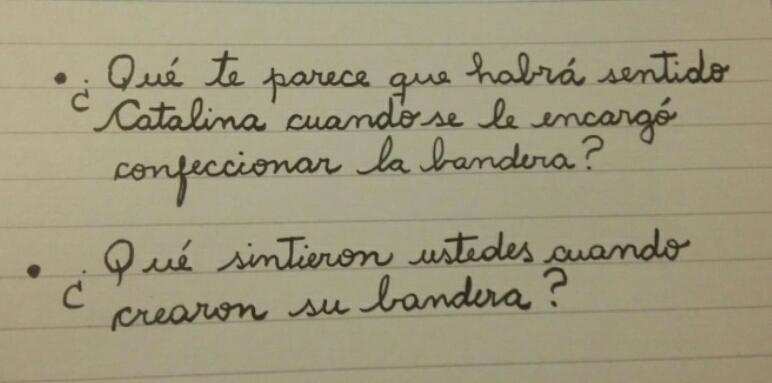 • ¿Qué te parece que habrá sentido
Catalina cuando se le encargó
confeccionar la bandera?
• ¿Qué sintieron ustedes cuando
crearon su bandera?